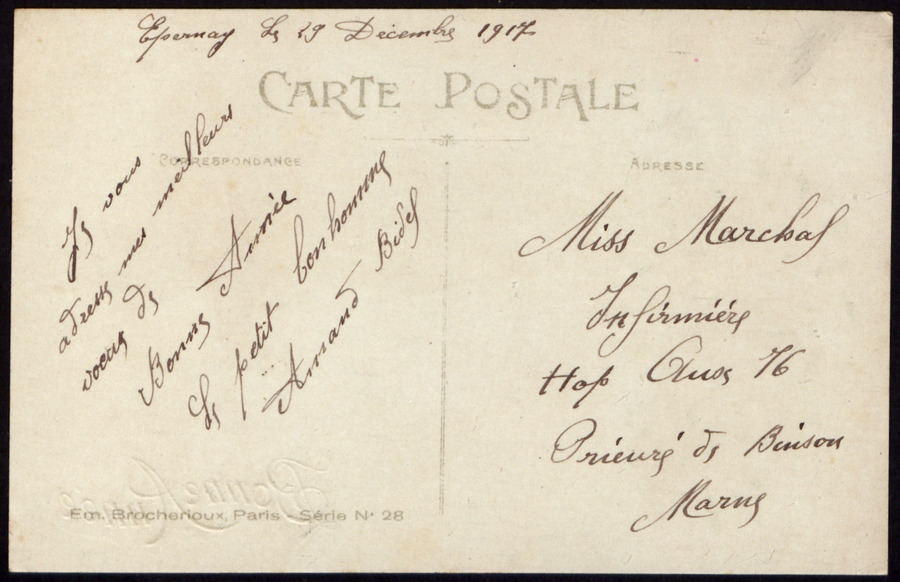 Epernay Le 29 Décembre 1917
CARTE POSTALE
CORRESPONDANCE
ADRESSE
Je vous
adresse mes meilleurs
voeux de
Bonne Année
Le petit bonhomme
Armand Bidel
Miss Marchal
Infirmière
Hop Auxe 76
Prieuré de Binson
Marne
Bonne Année
Em. Brocherioux, Paris - Série N° 28